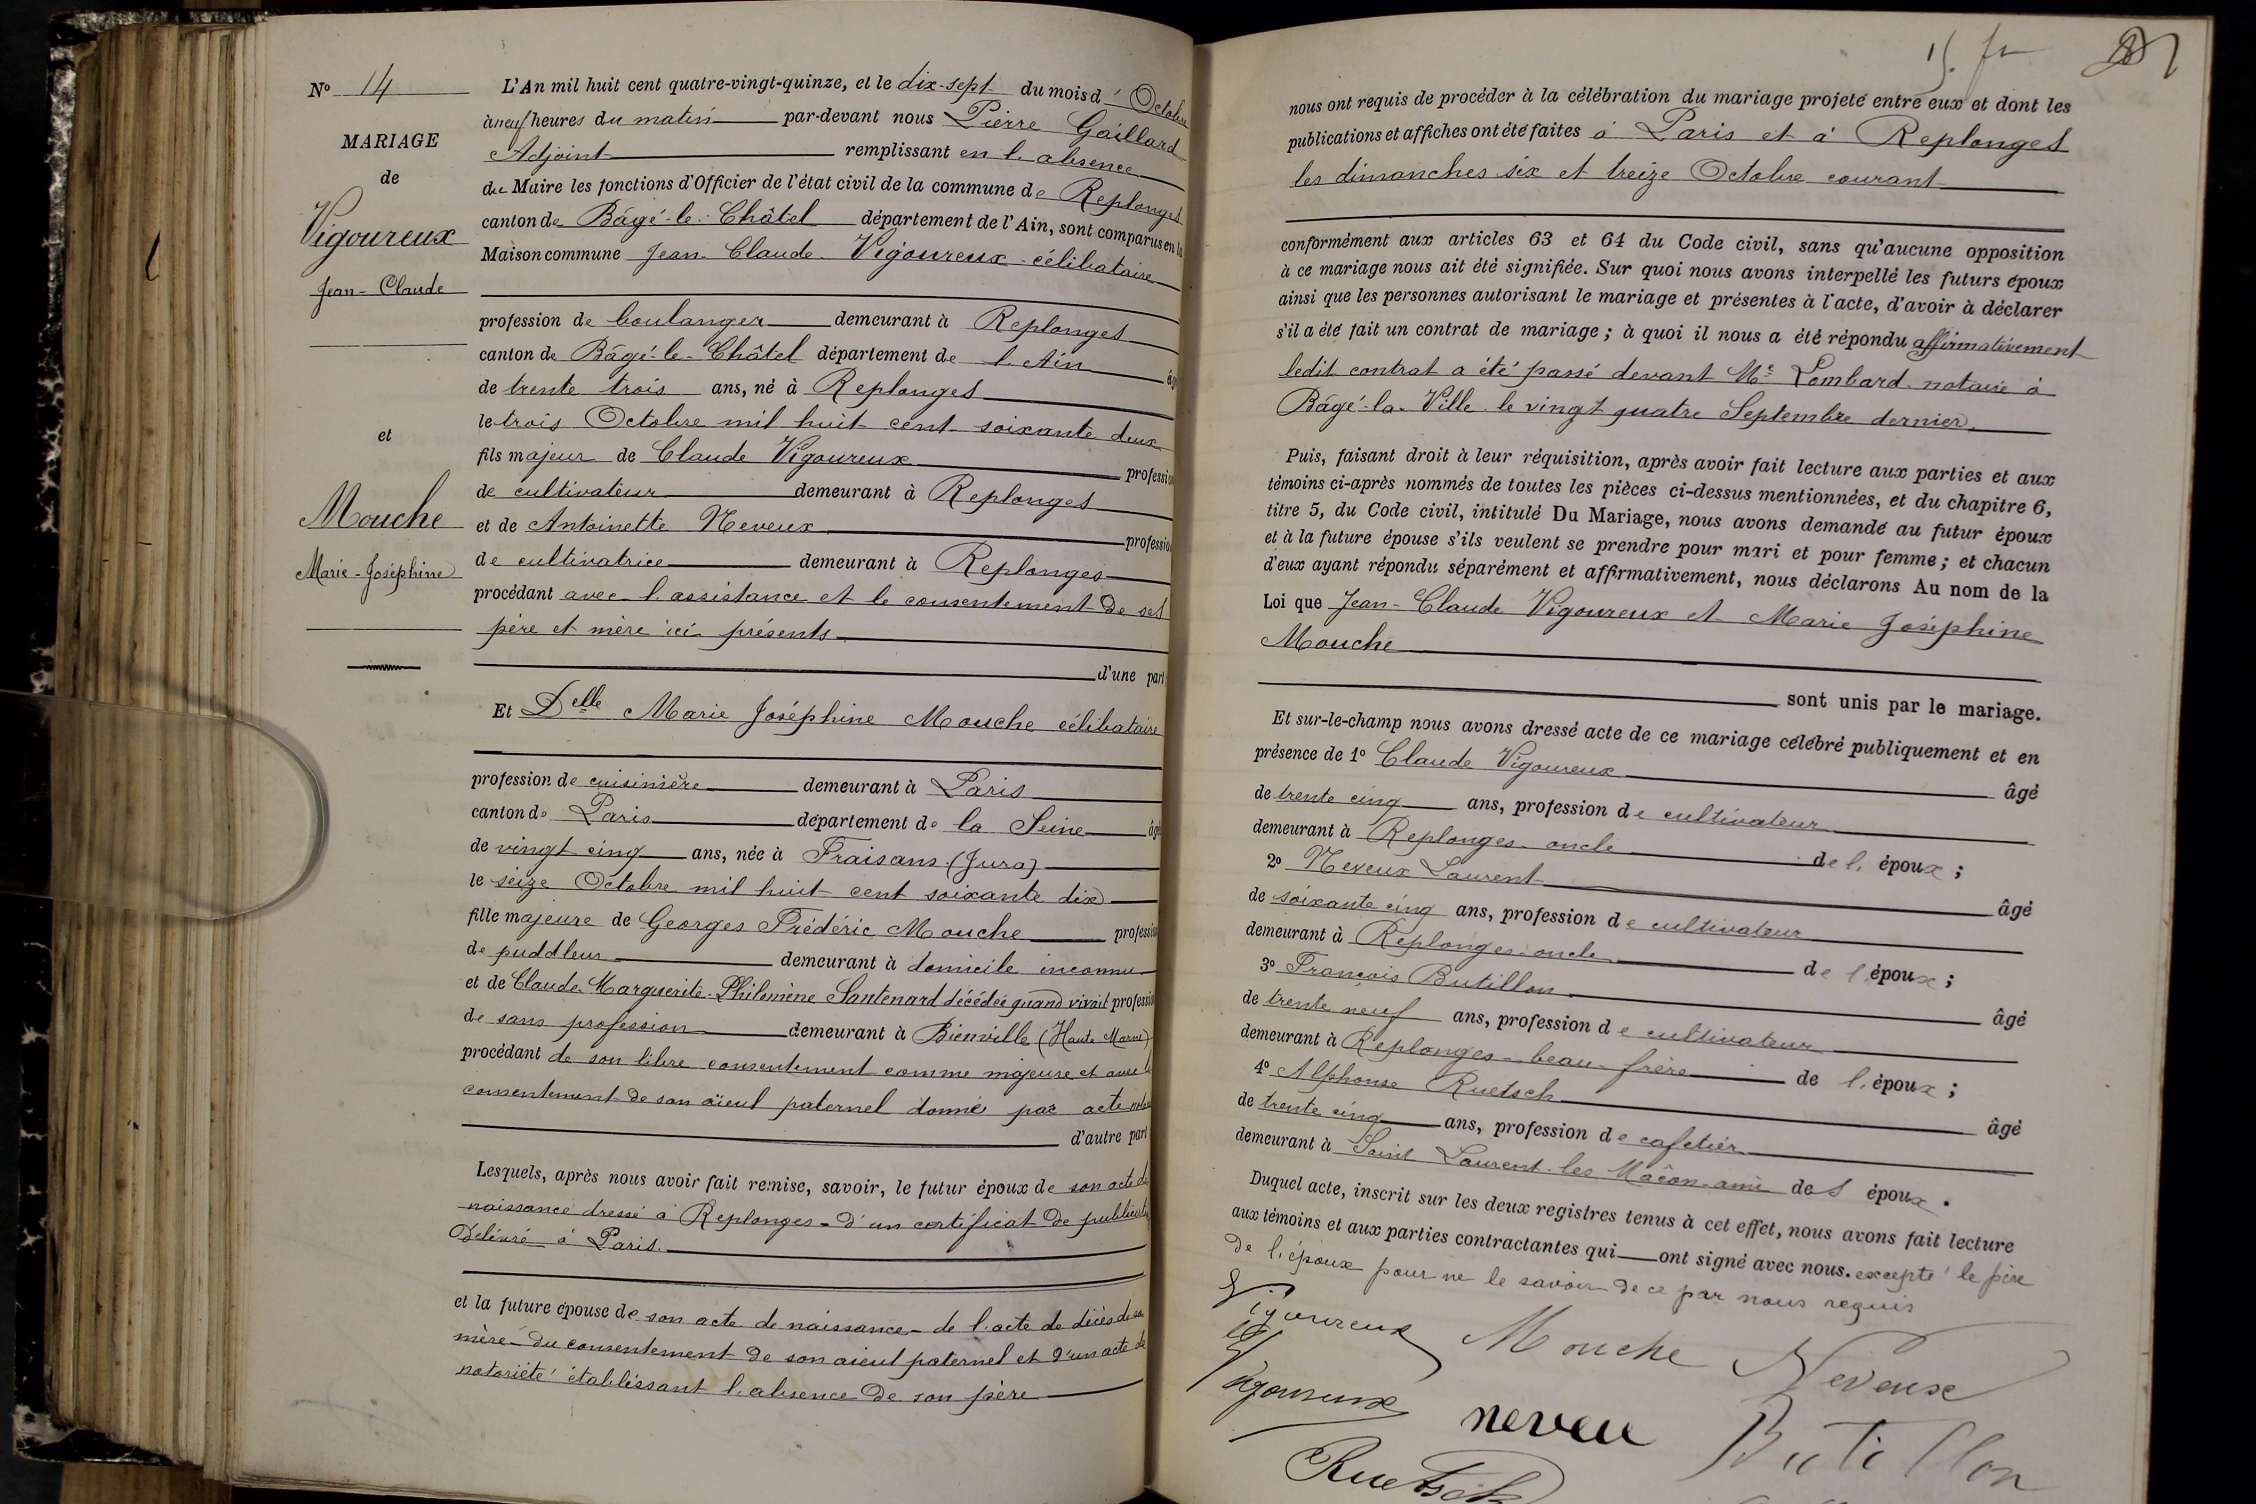 N° 14
MARIAGE
de
Vigoureux
Jean-Claude
et
Mouche
Marie-Joséphine
L'An mil huit cent quatre-vingt-quinze, et le dix-sept du mois d'Octobre
à neuf heures du matin par-devant nous Pierre Gaillard
Adjoint remplissant en l'absence
du Maire les fonctions d'Officier de l'état civil de la commune de Replonges
canton de Bâgé-le-Châtel département de l'Ain, sont comparus en la
Maison commune Jean-Claude Vigoureux célibataire
profession de boulanger demeurant à Replonges
canton de Bâgé-le-Châtel département de l'Ain âgé
de trente trois ans, né à Replonges
le trois Octobre mil huit cent soixante deux
fils majeur de Claude Vigoureux profession
de cultivateur demeurant à Replonges
et de Antoinette Neveux profession
de cultivatrice demeurant à Replonges
procédant avec l'assistance et le consentement de ses
père et mère ici présents
d'une part
Et Delle Marie Joséphine Mouche célibataire
profession de cuisinière demeurant à Paris
canton de Paris département de la Seine âgé
de vingt cinq ans, née à Fraisans (Jura)
le seize Octobre mil huit cent soixante dix
fille majeure de Georges Frédéric Mouche profession
de puddleur demeurant à domicile inconnu
et de Claude-Marguerite-Philomène Santenard décédée quand vivait profession
de sans profession demeurant à Bienville (Haute Marne)
procédant de son libre consentement comme majeure et avec le
consentement de son aïeul paternel donné par acte notarié
d'autre part
Lesquels, après nous avoir fait remise, savoir, le futur époux de son acte de
naissance dressé à Replonges - d'un certificat de publication
délivré à Paris.
et la future épouse de son acte de naissance - de l'acte de décès de sa
mère - du consentement de son aïeul paternel et d'un acte de
notoriété établissant l'absence de son père
15. fr
nous ont requis de procéder à la célébration du mariage projeté entre eux et dont les
publications et affiches ont été faites à Paris et à Replonges
les dimanches six et treize Octobre courant
conformément aux articles 63 et 64 du Code civil, sans qu'aucune opposition
à ce mariage nous ait été signifiée. Sur quoi nous avons interpellé les futurs époux
ainsi que les personnes autorisant le mariage et présentes à l'acte, d'avoir à déclarer
s'il a été fait un contrat de mariage ; à quoi il nous a été répondu affirmativement
ledit contrat a été passé devant Me Lombard notaire à
Bâgé-la-Ville le vingt quatre Septembre dernier,
Puis, faisant droit à leur réquisition, après avoir fait lecture aux parties et aux
témoins ci-après nommés de toutes les pièces ci-dessus mentionnées, et du chapitre 6,
titre 5, du Code civil, intitulé Du Mariage, nous avons demandé au futur époux
et à la future épouse s'ils veulent se prendre pour mari et pour femme ; et chacun
d'eux ayant répondu séparément et affirmativement, nous déclarons Au nom de la
Loi que Jean-Claude Vigoureux et Marie Joséphine
Mouche
sont unis par le mariage.
Et sur-le-champ nous avons dressé acte de ce mariage célébré publiquement et en
présence de 1° Claude Vigoureux âgé
de trente cinq ans, profession de cultivateur
demeurant à Replonges - oncle de l'époux ;
2° Neveux Laurent âgé
de soixante cinq ans, profession de cultivateur
demeurant à Replonges - oncle de l'époux ;
3° François Butillon âgé
de trente neuf ans, profession de cultivateur
demeurant à Replonges - beau-frère de l'époux ;
4° Alphonse Ruetsch âgé
de trente cinq ans, profession de cafetier
demeurant à Saint Laurent-les Mâcon-ami des époux.
Duquel acte, inscrit sur les deux registres tenus à cet effet, nous avons fait lecture
aux témoins et aux parties contractantes qui ont signé avec nous. excepté le père
de l'époux pour ne le savoir de ce par nous requis
Vigoureux Mouche Neveux
Vigoureux neveu Butillon
Ruetsch